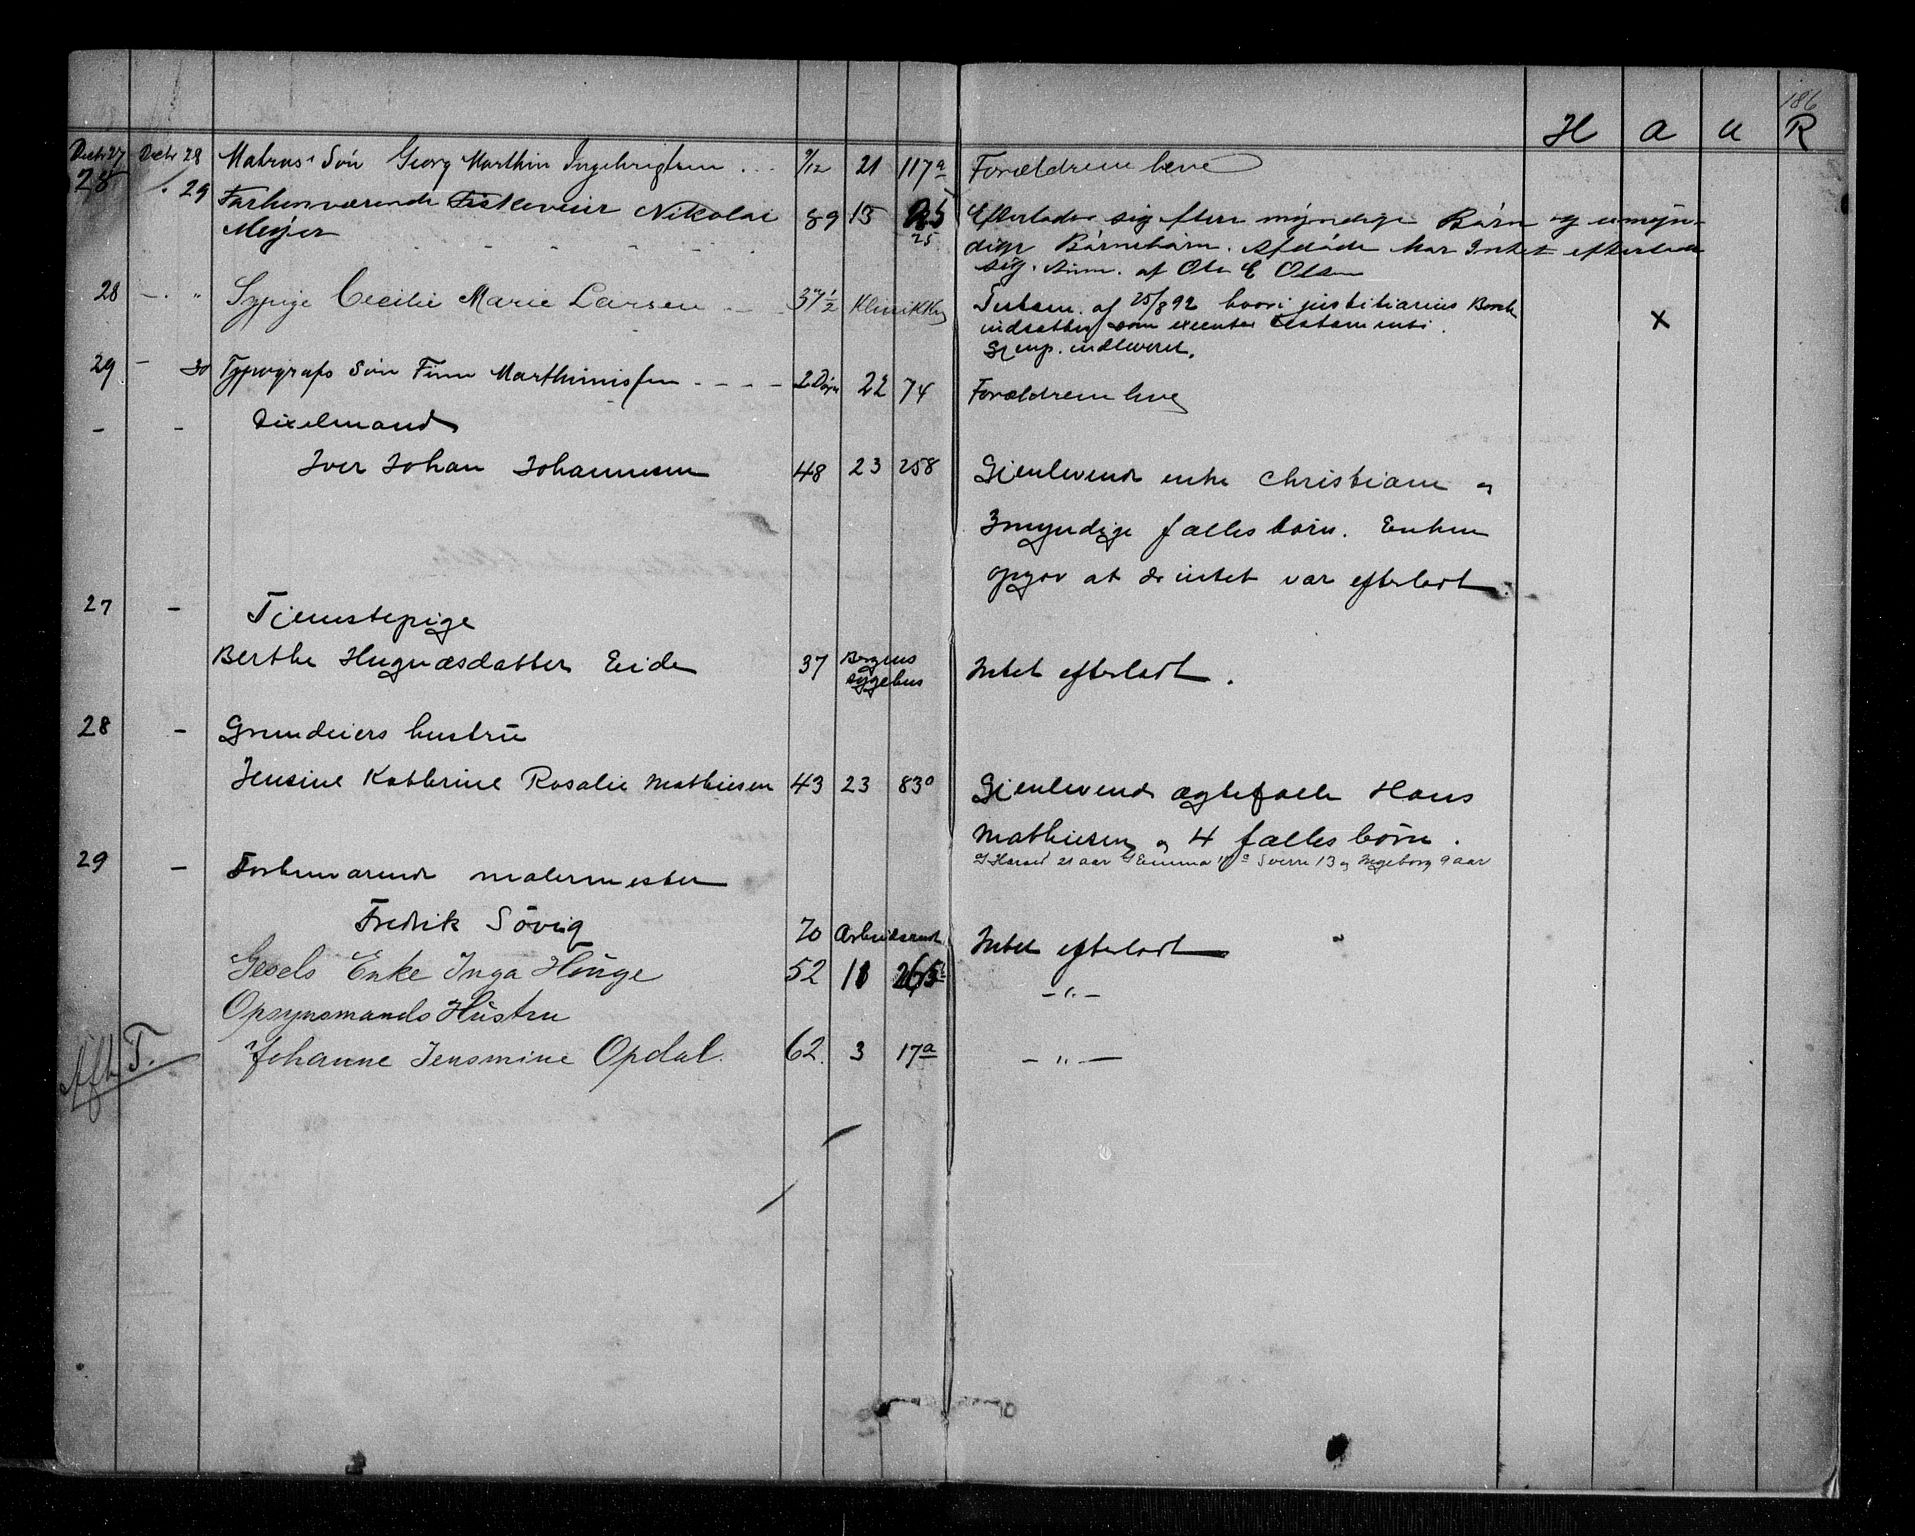 186
H a u R
Decbr 27 Decbr 28 Matros Søn Georg Marthin Ingebrigtsen . . . 9/12 21 117a Forældrene leve
28 29 Forhenværende Nikolai Meyer 89 15 25 Efterlader sig flere myndige Børn og umyn-
dige Børnebørn. Afdøde har Intet efterladt
sig. Anm. af Ole E Olsen
28 - . " Sypige Cecilie Marie Larsen 37 1/2 Klinikken Testam. af 25/8 92 hvori justitiarius
indsættes som executor testamenti.
Gjenp. indleveret.
29 - 30 Typografs Søn Finn Marthinissen - - - - 2 Døgn 22 74 Forældrene leve
- - Dixelmand
Iver Johan Johannesen 48 23 258 Gjenlevende enke Christiane og
3 myndige fælles børn. Enken
opgav at der intet var efterladt
27 - Tjenestepige
Berthe Eide 37 Bergens sygehus Intet efterladt.
28 - Grundeiers hustru
Jensine Kathrine Rosalie Mathiesen 43 23 83 Gjenlevende ægtefælle Hans
Mathiesen og 4 fælles børn.
Harald 21 aar Emma Sverre 13 og Ingeborg 9 aar
29 - Forhenværende malermester
Fredrik Søvig 70 Intet efterladt
Gesels Enke Inga Hauge 52 18 - " -
Opsynsmands Hustru
Johanne Jensmine Opdal. 62. 3 17a - " -
Afh. T.